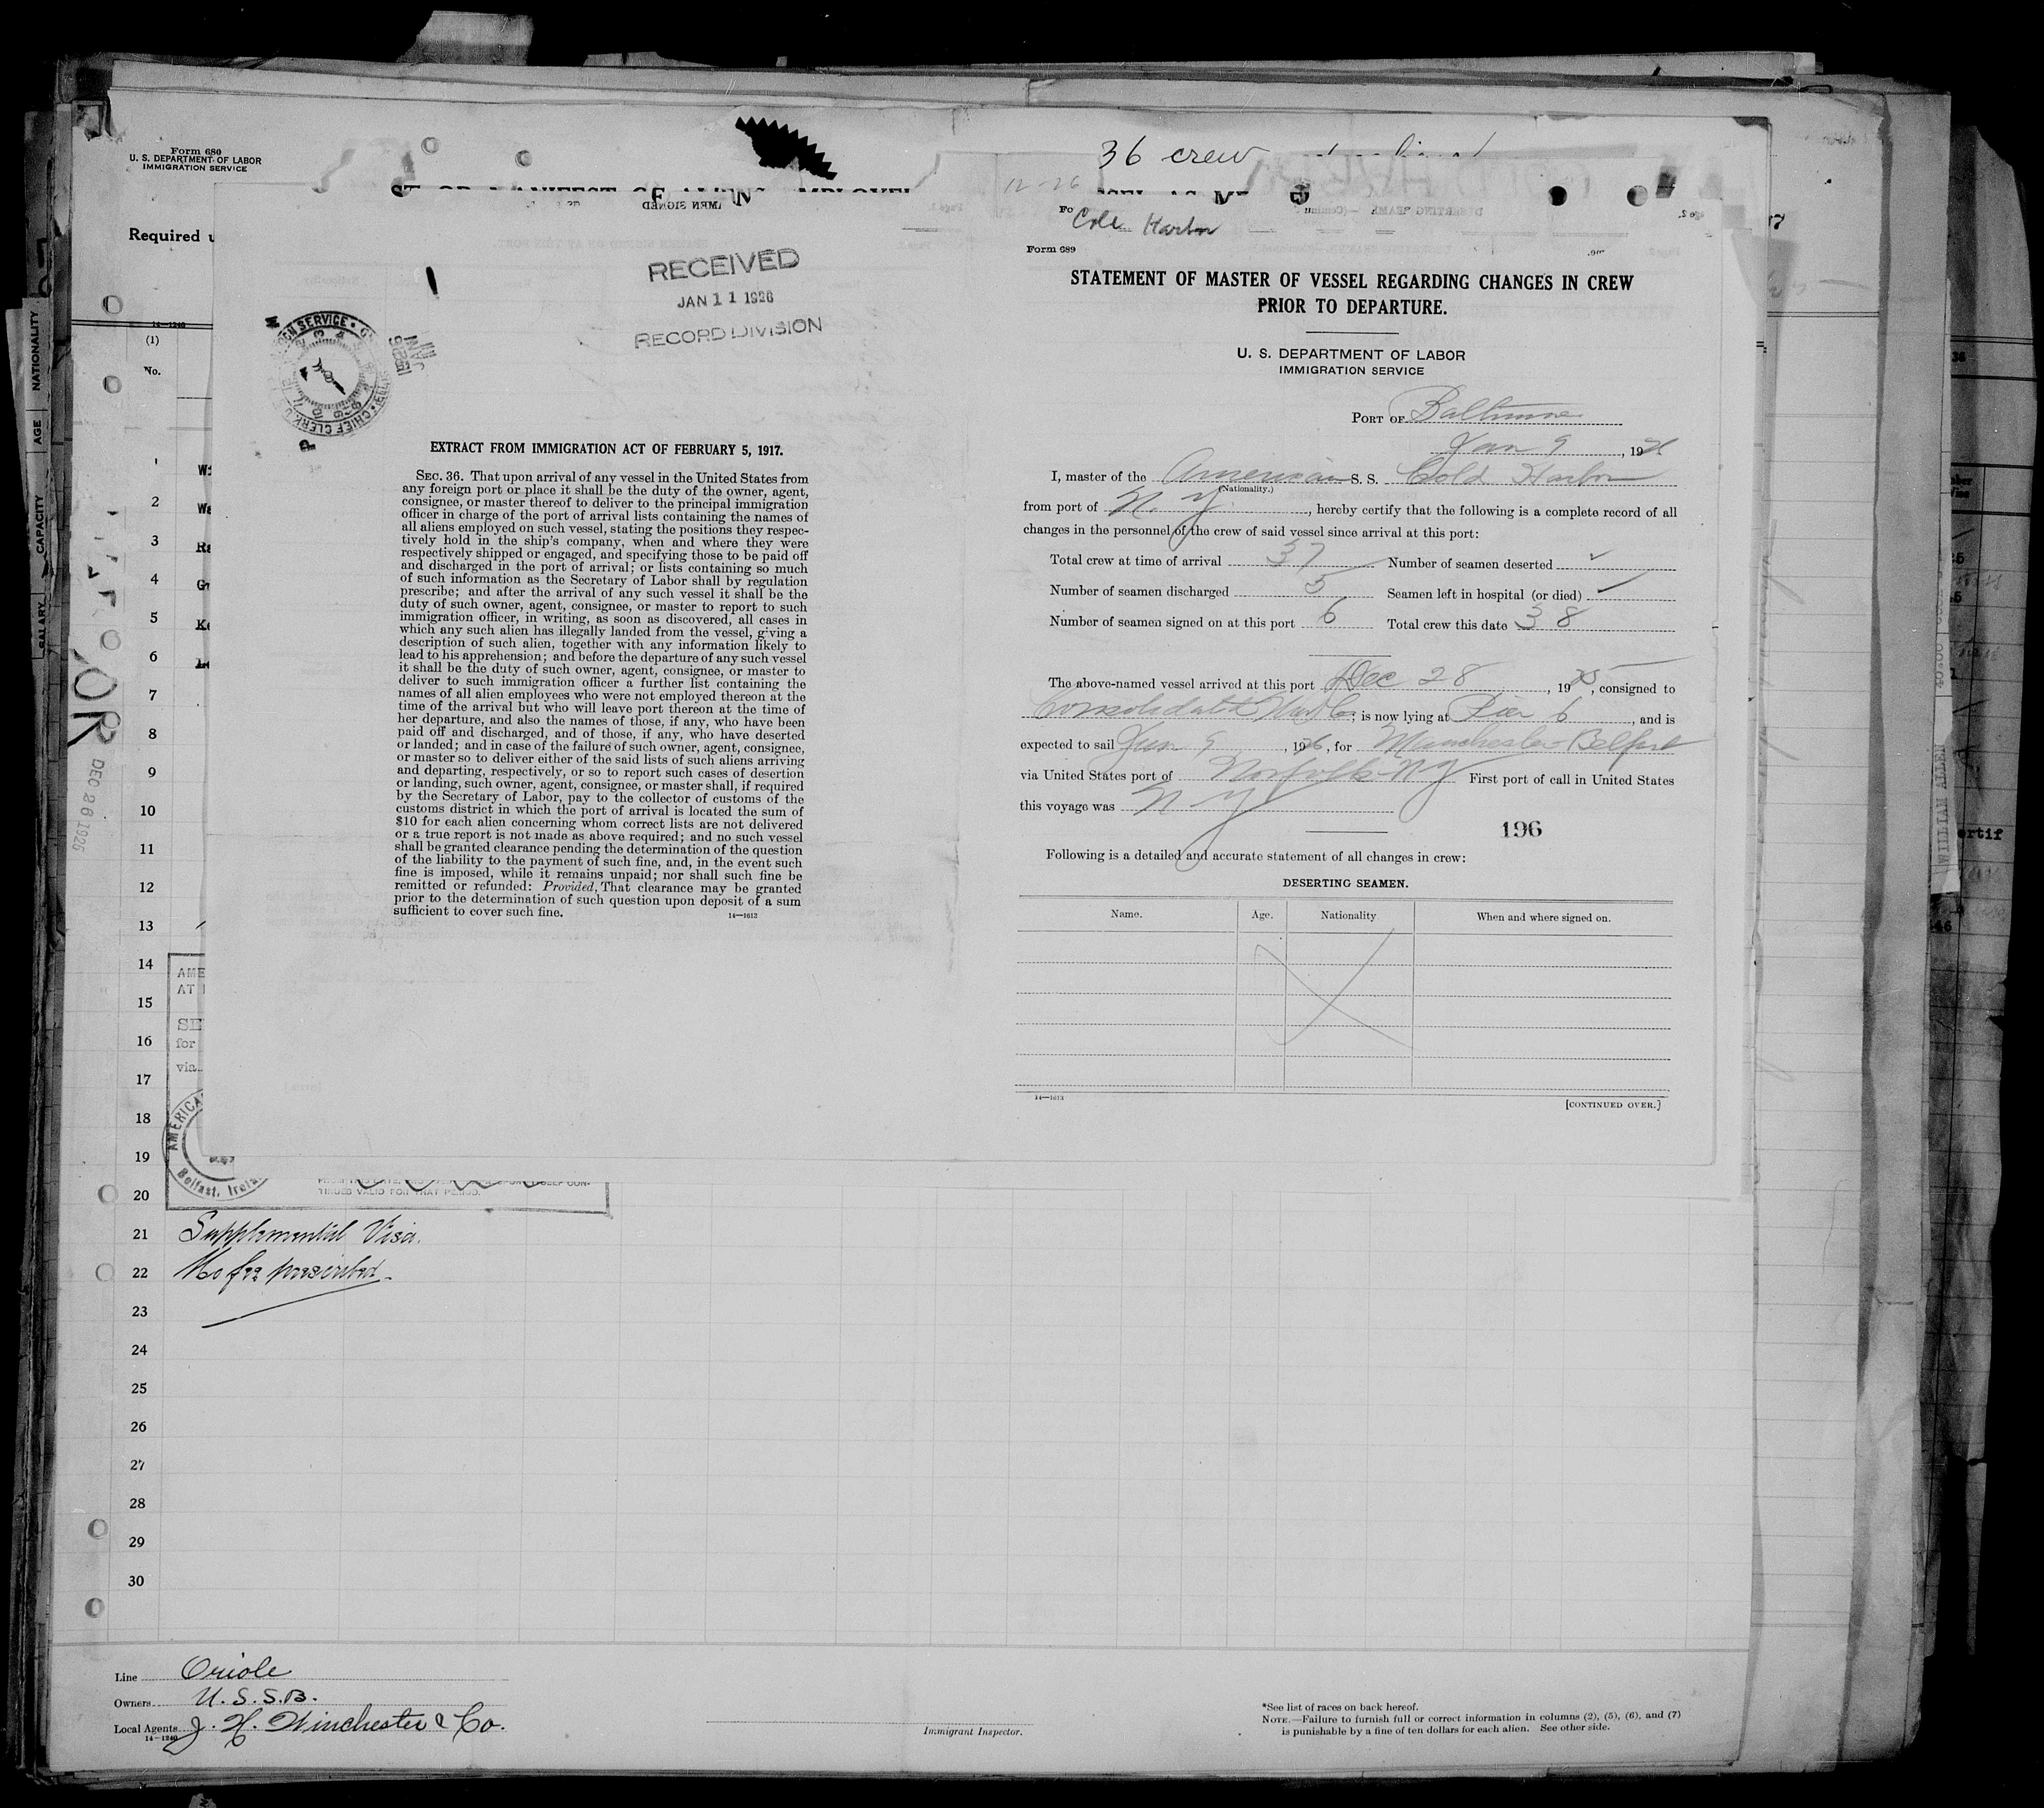 Form 680
U. S. DEPARTMENT OF LABOR
IMMIGRATION SERVICE
36 crew
12-26
Required u
14-1240
(1)
No.
RECEIVED
JAN 11 1926
RECORD DIVISION
EXTRACT FROM IMMIGRATION ACT OF FEBRUARY 5, 1917.
SEC. 36. That upon arrival of any vessel in the United States from
any foreign port or place it shall be the duty of the owner, agent,
consignee, or master thereof to deliver to the principal immigration
officer in charge of the port of arrival lists containing the names of
all aliens employed on such vessel, stating the positions they respec-
tively hold in the ship's company, when and where they were
respectively shipped or engaged, and specifying those to be paid off
and discharged in the port of arrival; or lists containing so much
of such information as the Secretary of Labor shall by regulation
prescribe; and after the arrival of any such vessel it shall be the
duty of such owner, agent, consignee, or master to report to such
immigration officer, in writing, as soon as discovered, all cases in
which any such alien has illegally landed from the vessel, giving a
description of such alien, together with any information likely to
lead to his apprehension; and before the departure of any such vessel
it shall be the duty of such owner, agent, consignee, or master to
deliver to such immigration officer a further list containing the
names of all alien employees who were not employed thereon at the
time of the arrival but who will leave port thereon at the time of
her departure, and also the names of those, if any, who have been
paid off and discharged, and of those, if any, who have deserted
or landed; and in case of the failure of such owner, agent, consignee,
or master so to deliver either of the said lists of such aliens arriving
and departing, respectively, or so to report such cases of desertion
or landing, such owner, agent, consignee, or master shall, if required
by the Secretary of Labor, pay to the collector of customs of the
customs district in which the port of arrival is located the sum of
$10 for each alien concerning whom correct lists are not delivered
or a true report is not made as above required; and no such vessel
shall be granted clearance pending the determination of the question
of the liability to the payment of such fine, and, in the event such
fine is imposed, while it remains unpaid; nor shall such fine be
remitted or refunded: Provided, That clearance may be granted
prior to the determination of such question upon deposit of a sum
sufficient to cover such fine.
14-1613
Form 689
STATEMENT OF MASTER OF VESSEL REGARDING CHANGES IN CREW
PRIOR TO DEPARTURE.
U. S. DEPARTMENT OF LABOR
IMMIGRATION SERVICE
PORT OF Baltimore
Jan 9, 1926
I, master of the American S. S. Cold Harbor
(Nationality.)
from port of N. Y., hereby certify that the following is a complete record of all
changes in the personnel of the crew of said vessel since arrival at this port:
Total crew at time of arrival 37 Number of seamen deserted
Number of seamen discharged 5 Seamen left in hospital (or died)
Number of seamen signed on at this port 6 Total crew this date 38
The above-named vessel arrived at this port Dec 28, 1925, consigned to
Consolidated; is now lying at Pier 6, and is
expected to sail Jan 9, 1926, for Manchester-Belfast
via United States port of Norfolk-NY First port of call in United States
this voyage was N Y
196
Following is a detailed and accurate statement of all changes in crew:
DESERTING SEAMEN.
Name. Age. Nationality When and where signed on.
14-1613
[CONTINUED OVER.]
1
2
3
4
5
6
7
8
9
10
11
12
13
14
15
16
17
18
19
20
21
22
23
24
25
26
27
28
29
30
DEC 28 1925
AME
AT
SE
for
via
AMERICA
Belfast, Irela
TINUED VALID FOR THAT PERIOD.
Supplemental Visa.
No fee prescribed.
Line Oriole
Owners U. S. S. B.
Local Agents J. H. Winchester & Co.
14-1240
Immigrant Inspector.
*See list of races on back hereof.
NOTE.—Failure to furnish full or correct information in columns (2), (5), (6), and (7)
is punishable by a fine of ten dollars for each alien. See other side.
NATIONALITY
AGE
CAPACITY
SALARY
WILLIAM ALLEN